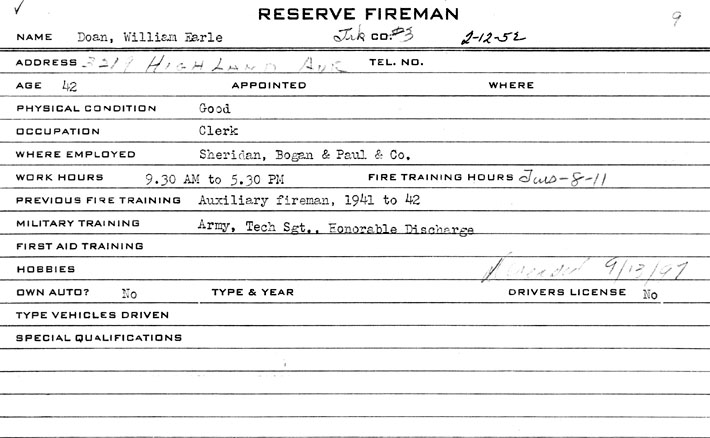 RESERVE FIREMAN 9
NAME Doan, William Earle Trk CO. #3 2-12-52
ADDRESS 3219 HIGHLAND AVE TEL. NO.
AGE 42 APPOINTED WHERE
PHYSICAL CONDITION Good
OCCUPATION Clerk
WHERE EMPLOYED Sheridan, Bogan & Paul & Co.
WORK HOURS 9.30 AM to 5.30 PM FIRE TRAINING HOURS Tues-8-11
PREVIOUS FIRE TRAINING Auxiliary fireman, 1941 to 42
MILITARY TRAINING Army, Tech Sgt., Honorable Discharge
FIRST AID TRAINING
HOBBIES 9/13/97
OWN AUTO? No TYPE & YEAR DRIVERS LICENSE No
TYPE VEHICLES DRIVEN
SPECIAL QUALIFICATIONS